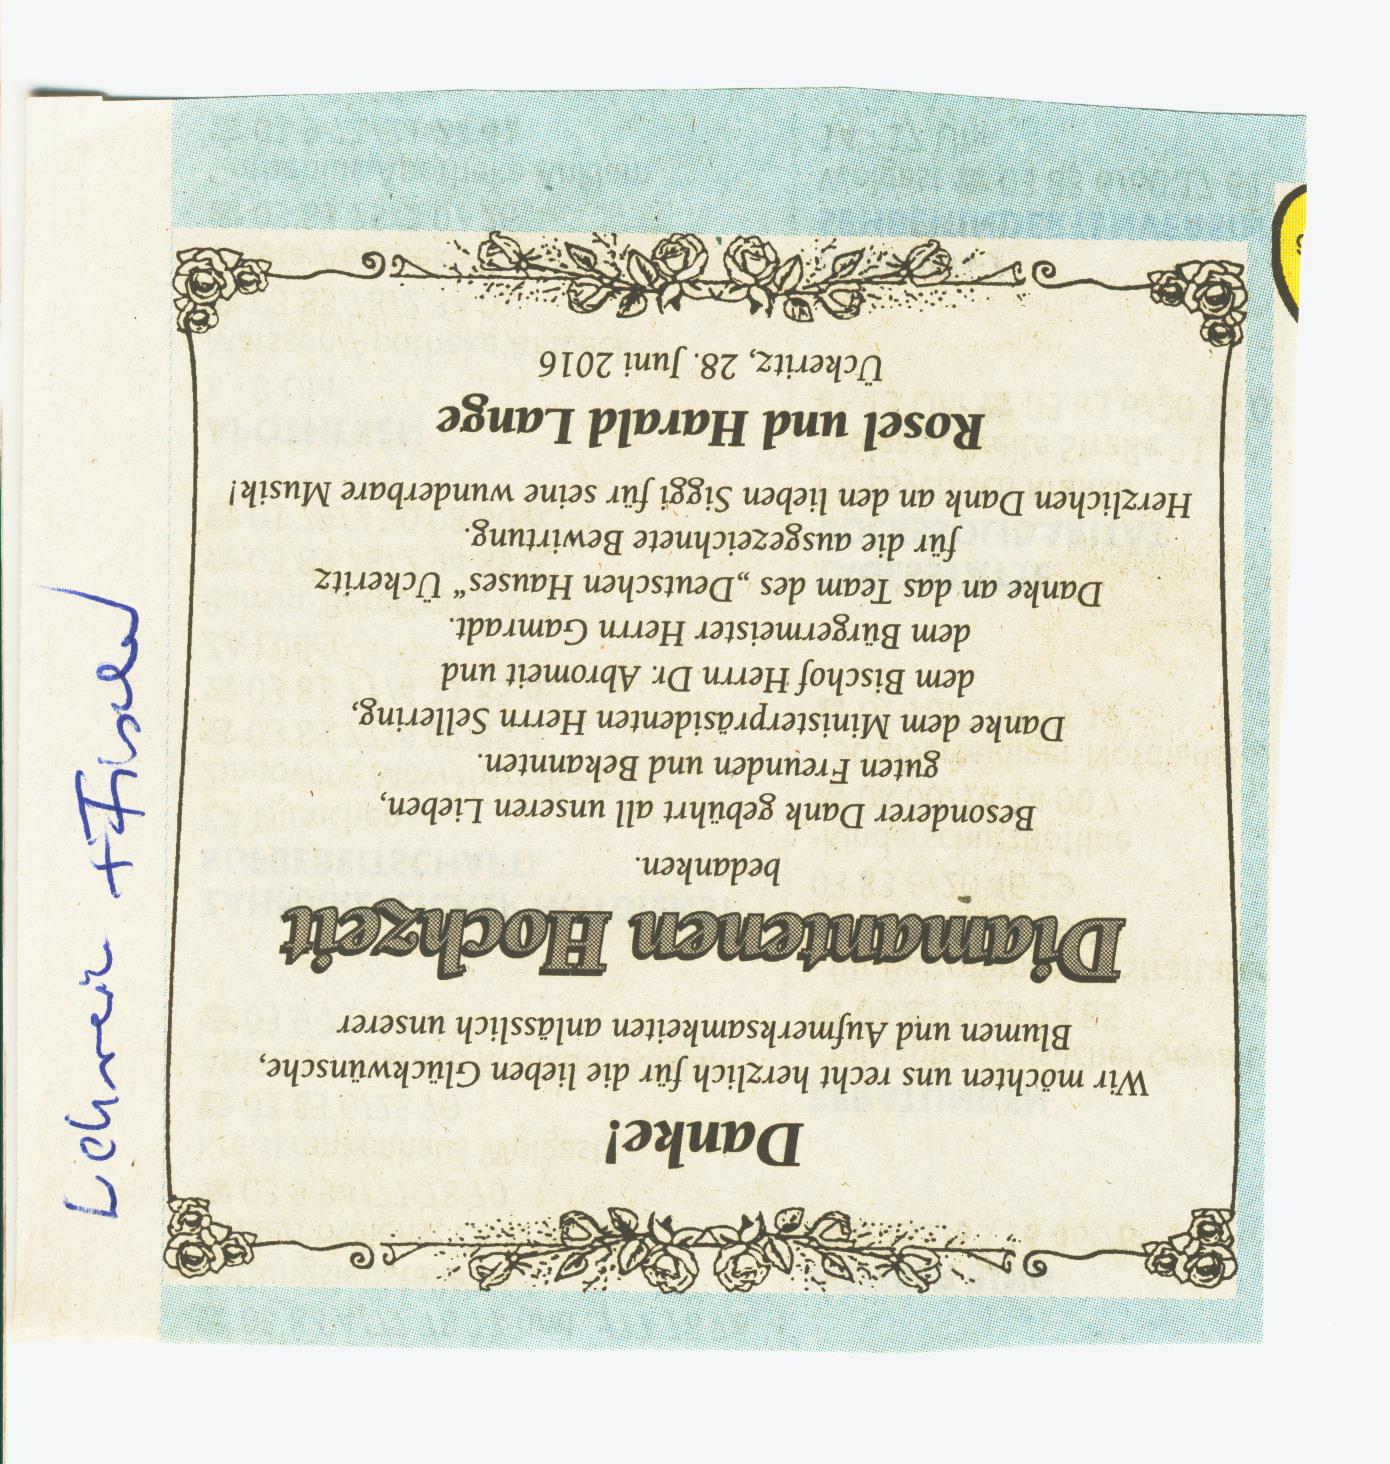 Danke!
Wir möchten uns recht herzlich für die lieben Glückwünsche,
Blumen und Aufmerksamkeiten anlässlich unserer
Diamantenen Hochzeit
bedanken.
Besonderer Dank gebührt all unseren Lieben,
guten Freunden und Bekannten.
Danke dem Ministerpräsidenten Herrn Sellering,
dem Bischof Herrn Dr. Abromeit und
dem Bürgermeister Herrn Gamradt.
Danke an das Team des „Deutschen Hauses“ Ückeritz
für die ausgezeichnete Bewirtung.
Herzlichen Dank an den lieben Siggi für seine wunderbare Musik!
Rosel und Harald Lange
Ückeritz, 28. Juni 2016